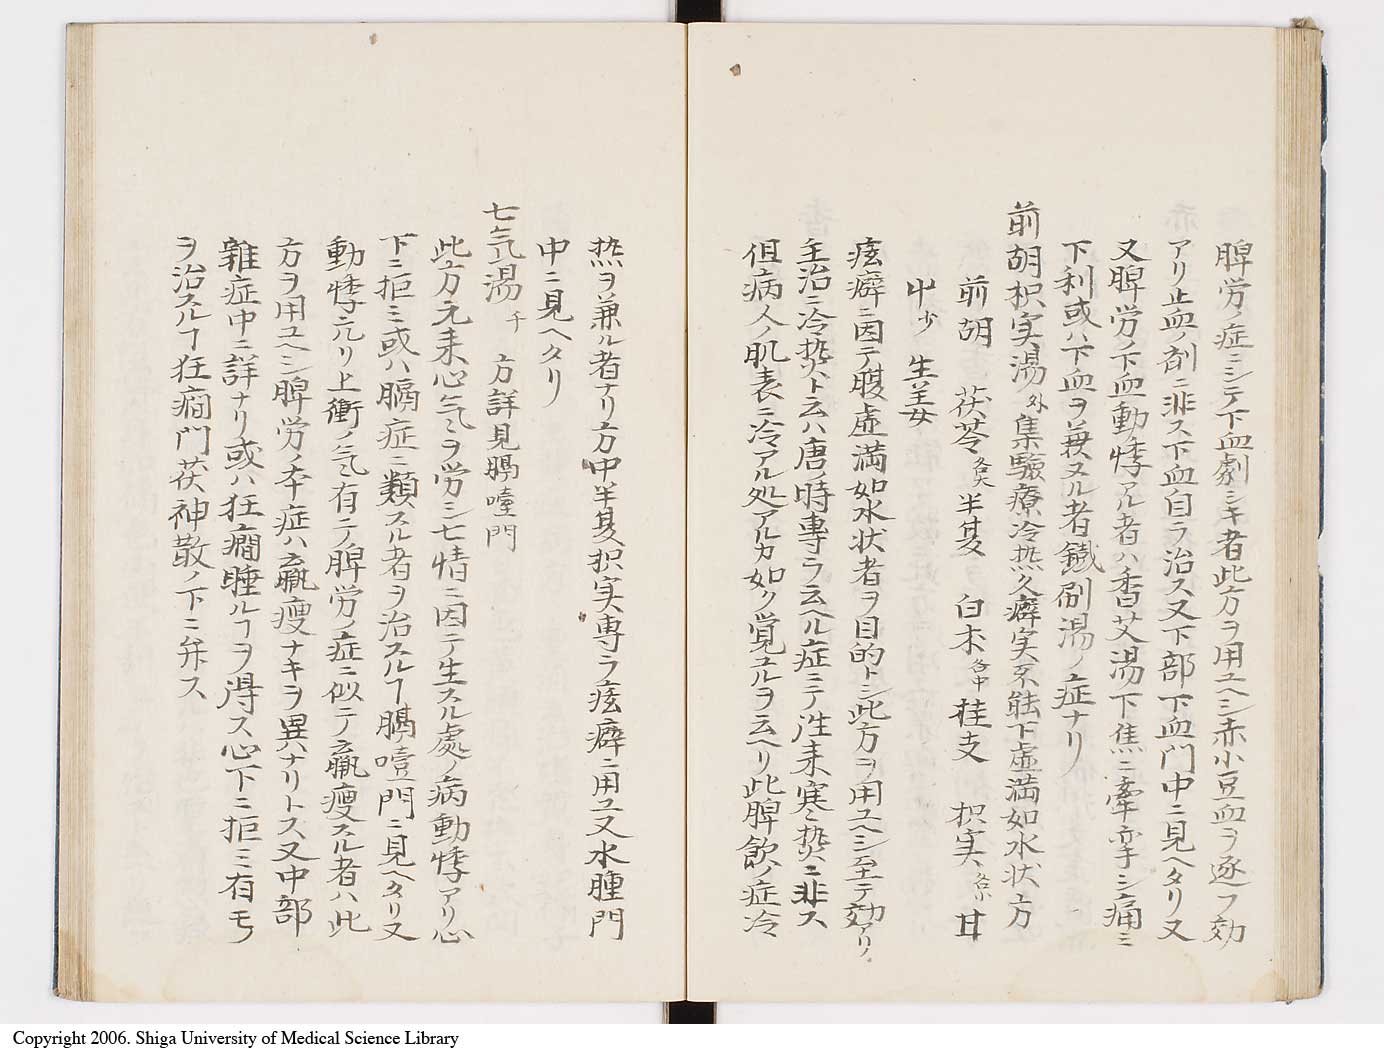 脾労ノ症ニシテ下血劇シキ者此方ヲ用ユヘシ赤小豆血ヲ逐フ効
アリ止血ノ剤ニ非ス下血自ラ治ス又下部下血門中ニ見ヘタリ又
又脾労ノ下血動ノ悸アル者ハ香艾湯下焦ニ牽ヒキシ痛ミ
下利或ハ下血ヲ兼ヌル者鐵刷湯ノ症ナリ
前胡枳実湯 外 集驗療冷熱久癖実不能下虚満如水状方
前胡 茯苓 各大 半夏 白朮 各中 桂支 枳実 各小 甘
中 少 生姜
痃癖ニ因テ腹虚満如水状者ヲ目的トシ此方ヲ用ユヘシ至テ効アリ
主治ニ冷熱ト云ハ唐ノ時専ラ云ヘル症ニテ往来寒熱ニ非ス
但病人ノ肌表ニ冷アル処アルカ如ク覚ユルヲ云ヘリ此脾飲ノ症冷
熱ヲ兼ル者ナリ方中半夏枳実専ラ痃癖ニ用ユ又水腫門
中ニ見ヘタリ
七气湯 千 方詳見膈噎門
此方元来心气ヲ労シ七情ニ因テ生スル處ノ病動悸アリ心
下ニ拒ミ或ハ膈症ニ類スル者ヲ治スルヿ膈噎門ニ見ヘタリ又
動悸亢リ上衝ノ气有テ脾労ノ症ニ似テ羸痩スル者ハ此
方ヲ用ユヘシ脾労ノ本症ハ羸痩ナキヲ異ハナリトス又中部
雜症中ニ詳ナリ或ハ狂癇睡ルヿヲ得ス心下ニ拒ミ有モノ
ヲ治スルヿ狂癇門茯神散ノ下ニ弁ス
Copyright 2006. Shiga University of Medical Science Library